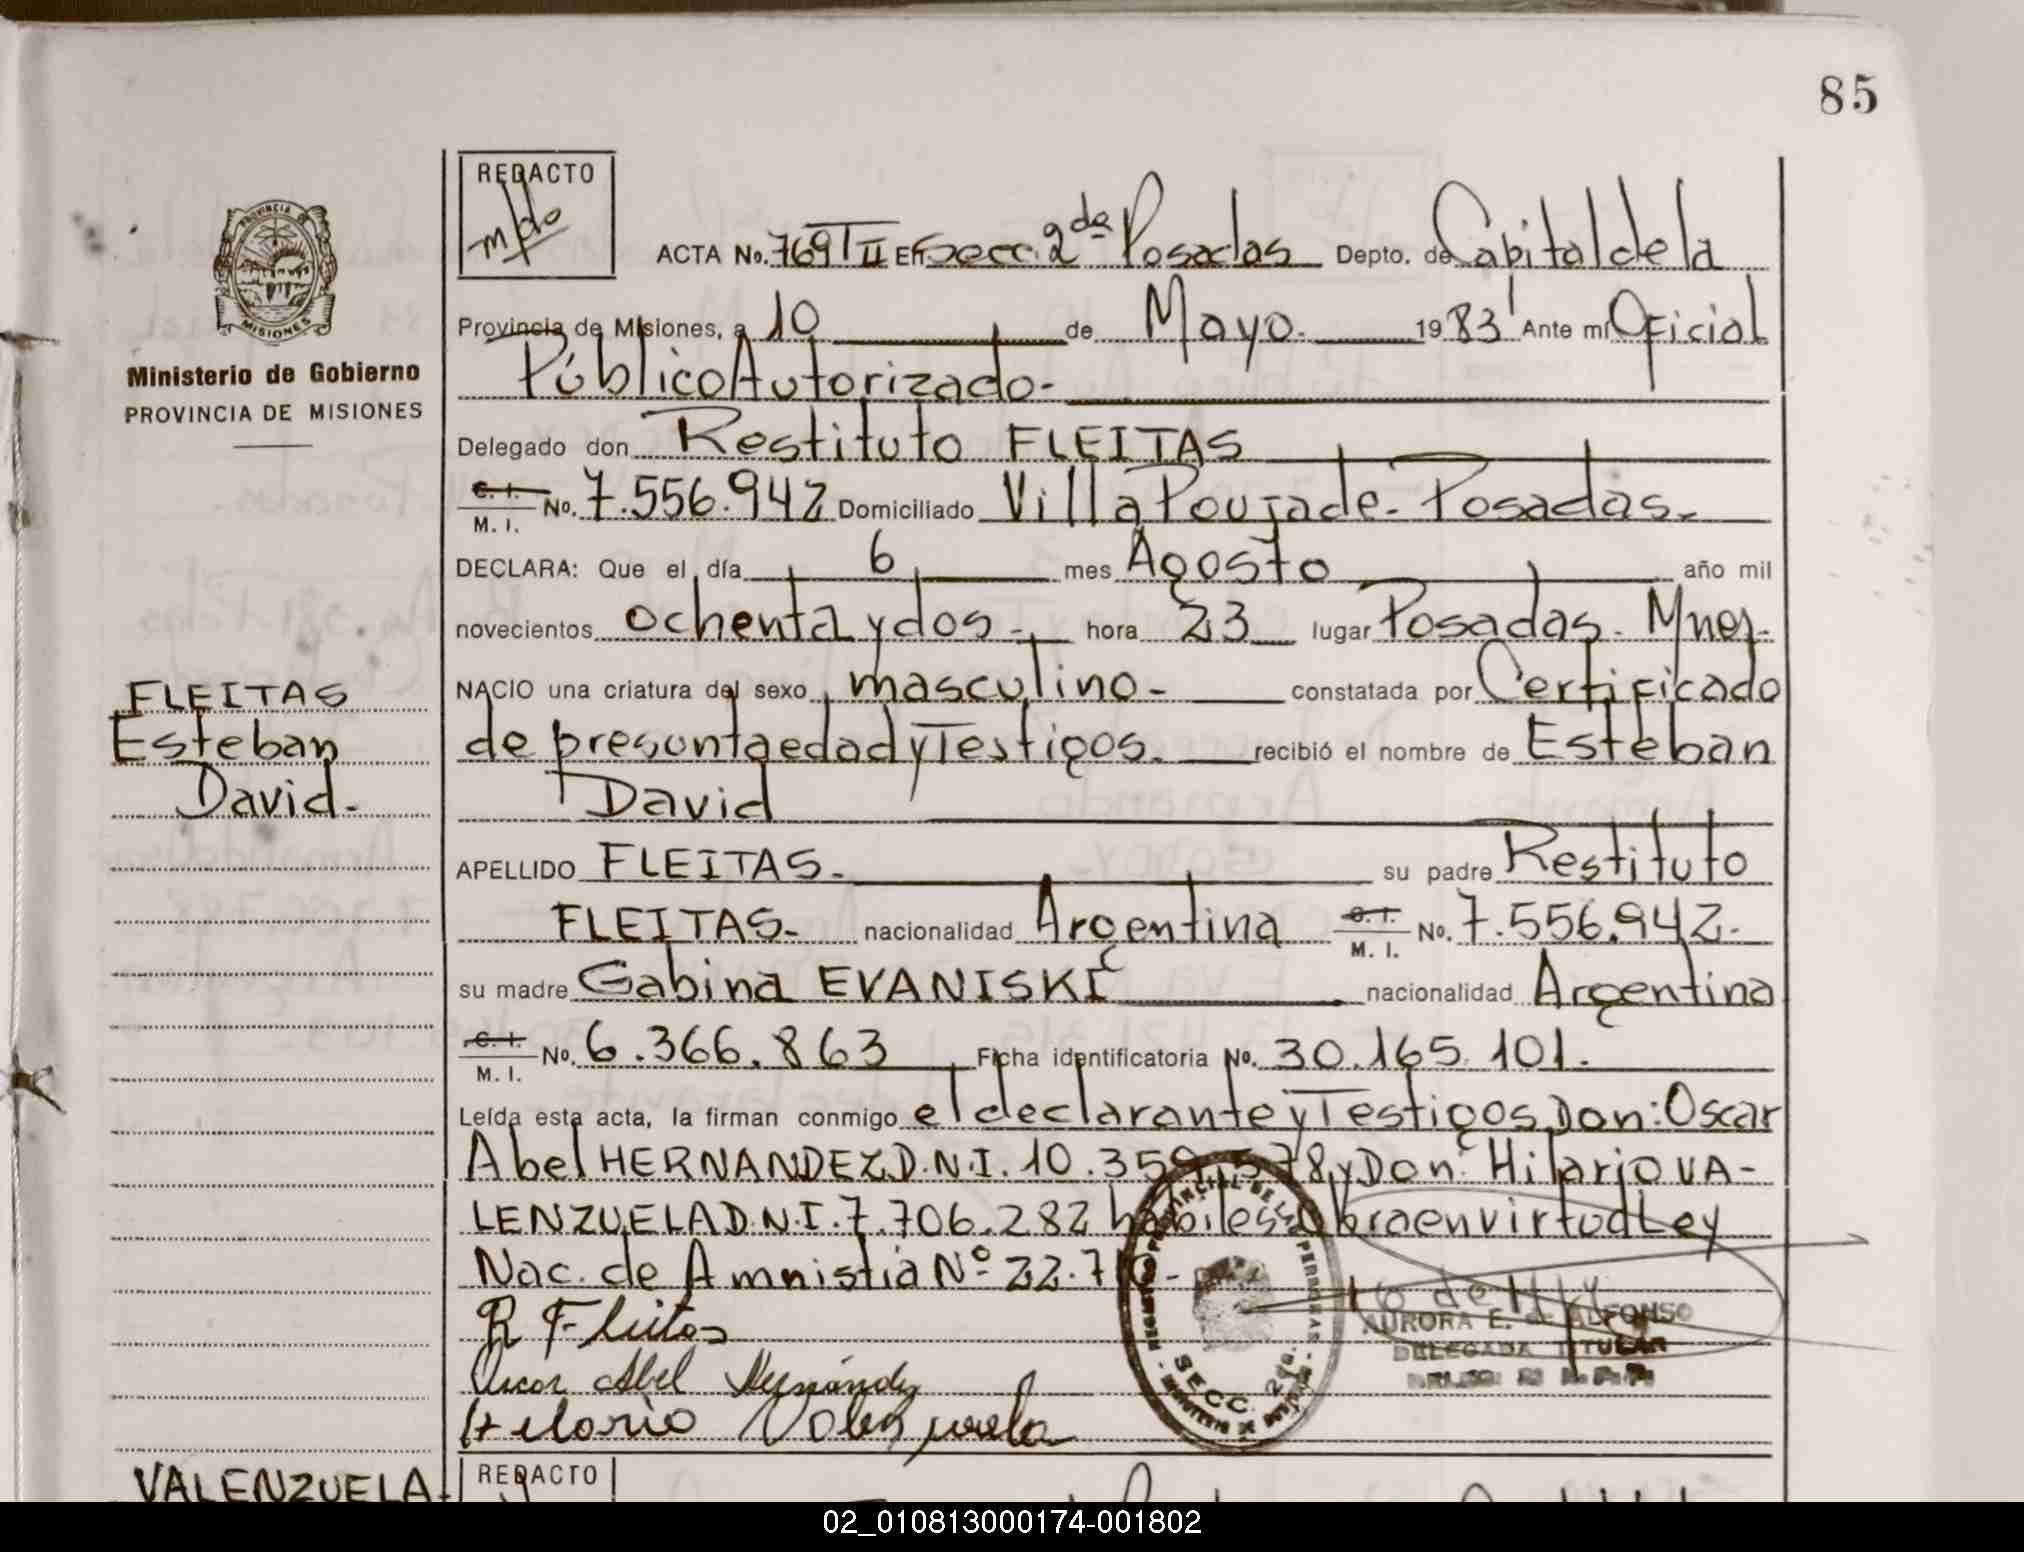 85
REDACTO
ACTA No. 769 T II En Secc. 2da Posadas Depto. de Capital de la
PROVINCIA DE MISIONES
Provincia de Misiones, a 10 de Mayo. 1983 Ante mí Oficial
Ministerio de Gobierno
Público Autorizado-
PROVINCIA DE MISIONES
Delegado don Restituto FLEITAS
C. I. M. I. No. 7.556.942 Domiciliado Villa Poujade- Posadas.
DECLARA: Que el día 6 mes Agosto año mil
novecientos ochenta y dos - hora 23 lugar Posadas. Mnes.
FLEITAS
NACIO una criatura del sexo masculino- constatada por Certificado
Esteban
de presunta edad y Testigos. recibió el nombre de Esteban
David-
David
APELLIDO FLEITAS- su padre Restituto
FLEITAS- nacionalidad Argentina C. I. M. I. No. 7.556.942-
su madre Gabina EVANISKI nacionalidad Argentina
C. I. M. I. No. 6.366.863 Ficha identificatoria No. 30.165.101.
Leída esta acta, la firman conmigo el declarante y Testigos Don: Oscar
Abel HERNANDEZ D.N.I. 10.359.578 y Don: Hilario VA-
LENZUELA D.N.I. 7.706.282 habiles Obra en virtud Ley
Nac. de Amnistia Nº 22.7
R Fleitas
AURORA E. de ALFONSO
DELEGADA TITULAR
Oscar Abel Hernández
SECC. 2da.
Hilario Valenzuela
VALENZUELA
REDACTO
02_010813000174-001802